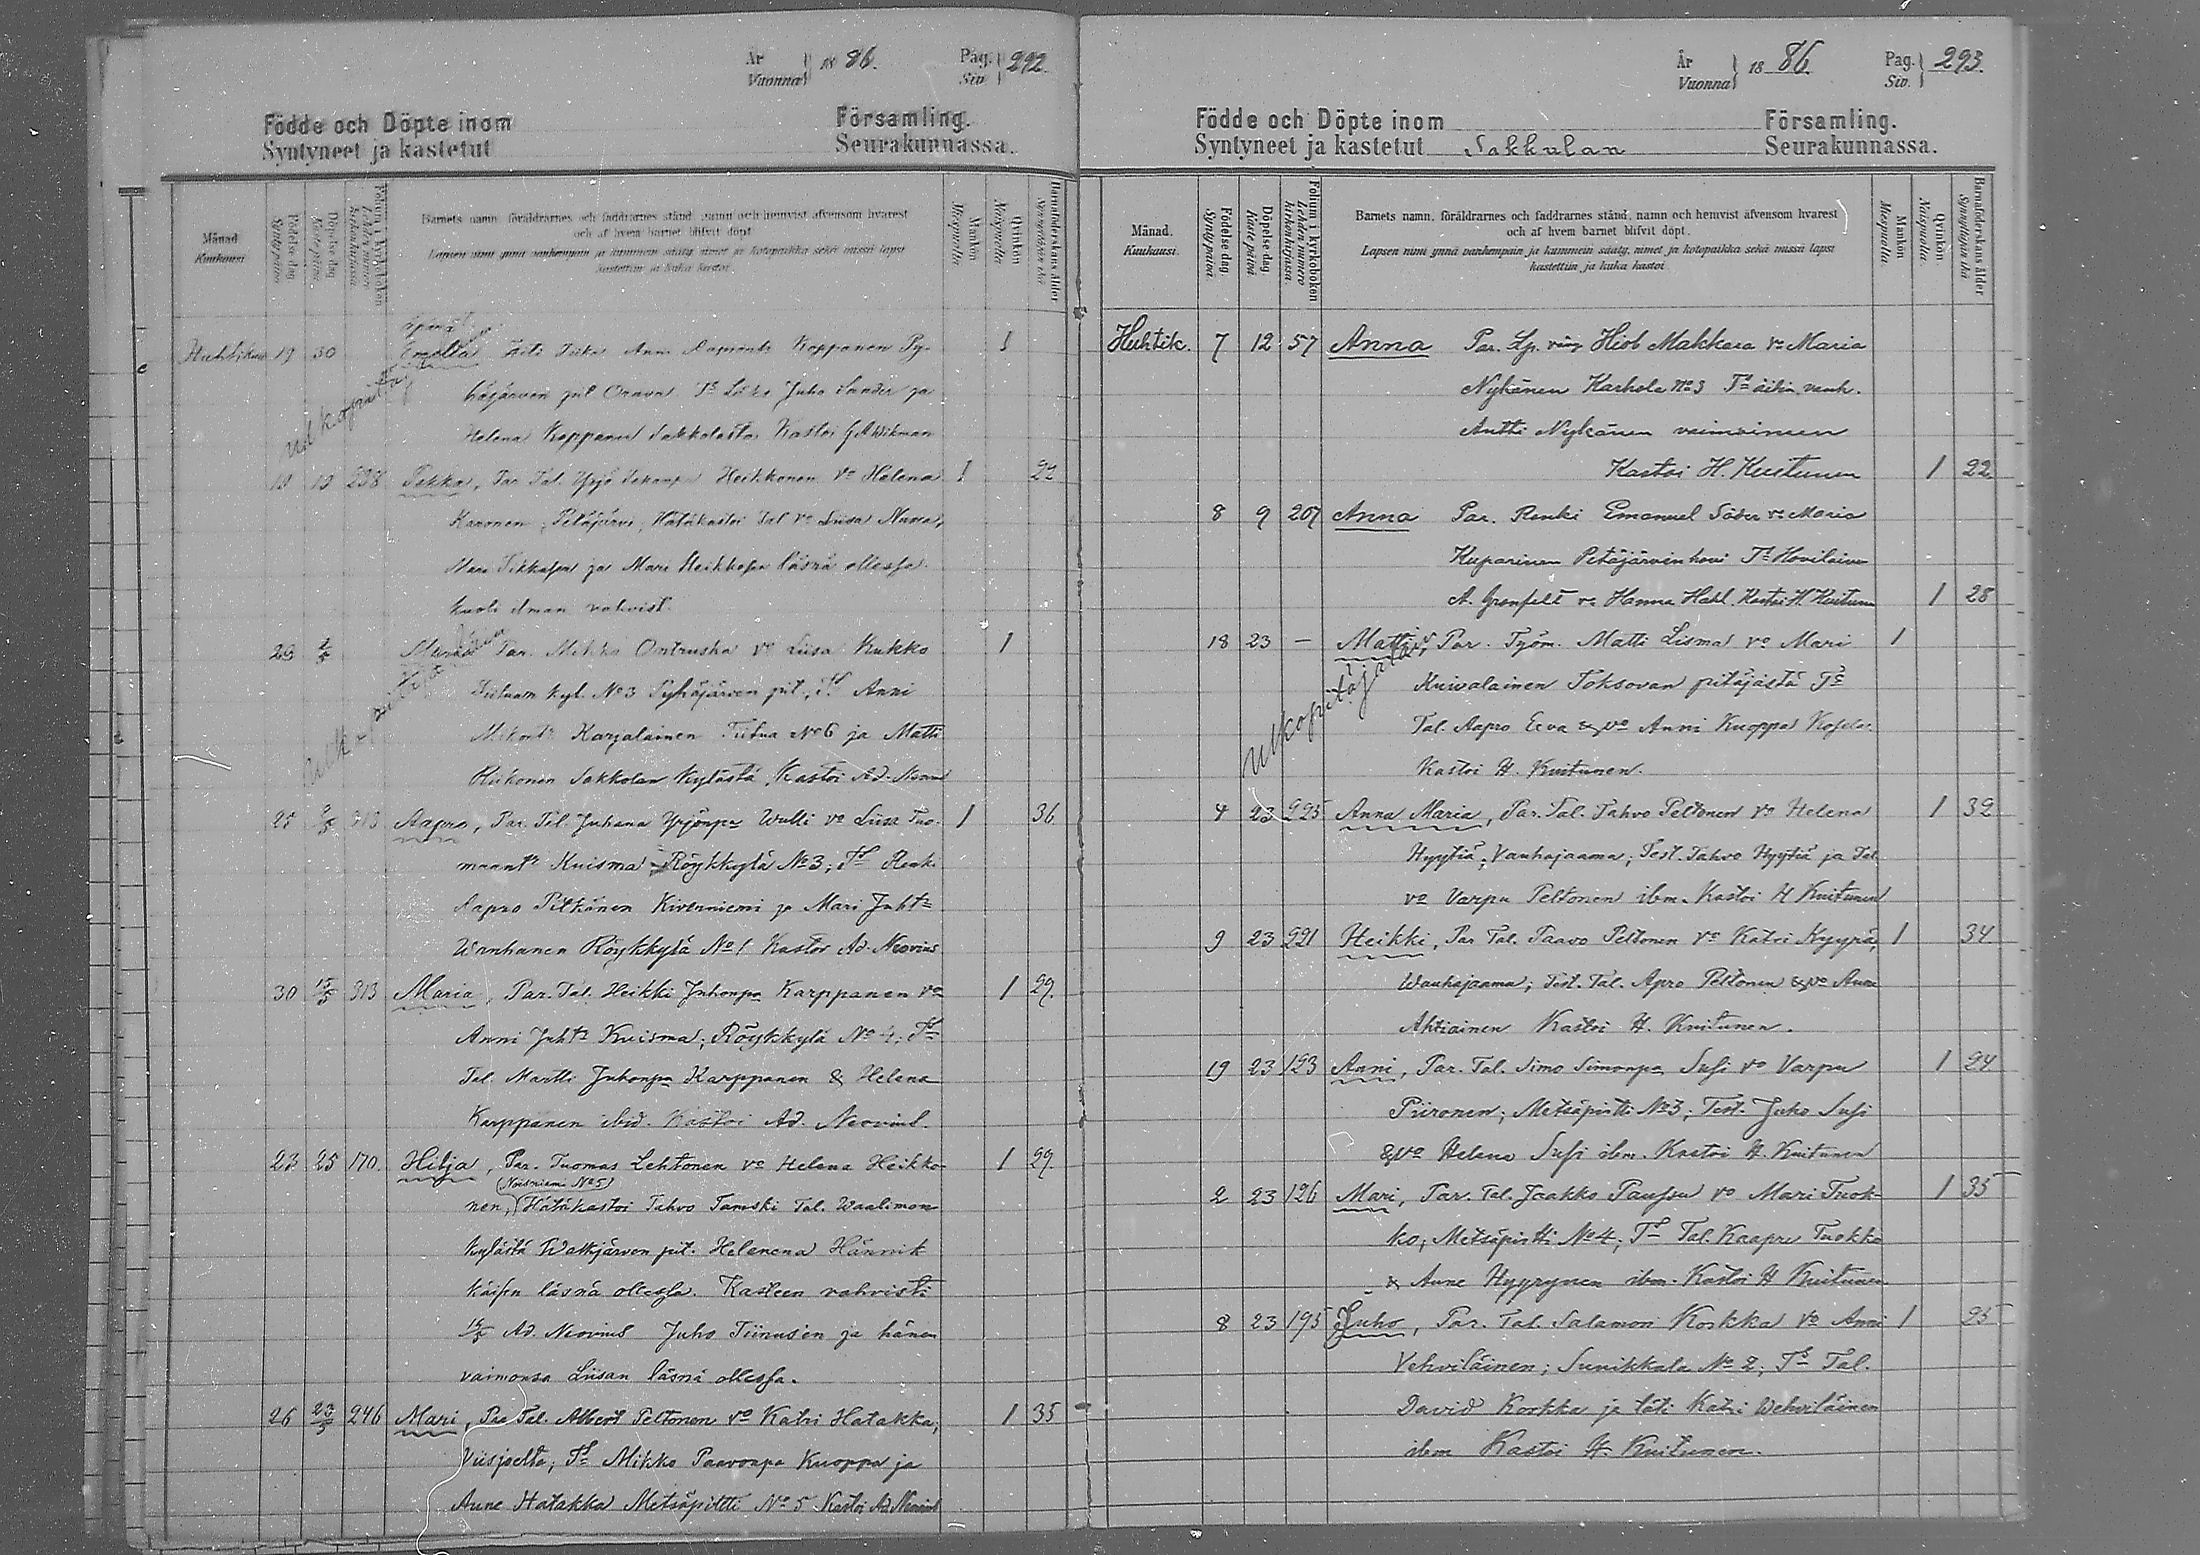 År
Vuonna 18 86.
Pag. 292.
Siv.
Födde och Döpte inom Församling.
Syntyneet ja kastetut Seurakunnassa.
Månad
Kuukausi
Födelse dag
Syntypäivä
Döpelse dag
Kaste päivä
Folium i kyrkoboken
Lehden numero kirkonkirjassa
Barnets namn, föräldrarnes och faddrarnes stånd, namn och hemvist äfvensom hvarest
och af hvem barnet blifvit döpt.
Lapsen nimi ynnä vanhempain ja kummein sääty, nimet ja kotopaikka sekä missä lapsi
kastettiin ja kuka kastoi
Mankön
Miespuolia
Qvinkön
Naispuolia
Barnaföderskans ålder
Synnyttäjän ikä
Huhtikuu 19 30 Äiti Anna Koppanen Py- 1
häjärven pit Juho Sander ja
Helena Koppanen Sakkolasta Kastoi
ulkopitäj
19 19 238 Pekka, Par Tal. Yrjö Heikkonen Vo Helena 1 22
Petäjärvi, Hätäkastoi Tal vo Liisa
ja Mari läsnä ollessa.
kuoli ilman vahvist.
29 2/5 Maria Par. Mikko Ontruska Vo Liisa Kukko 1
kyl. No 3 Pyhäjärven pit, Tt Anni
Karjalainen No 6 ja Matti
Sakkolan Kylästä. Kastoi Ad.
ulkopitäjä
25 2/5 313 Aapro, Par. Tal. Juhana Yrjönpa Wulli vo Liisa Tuo- 1 36
maant. Kuisma Röykkylä No 3; Tt Renki
Aapro Pitkänen Kiviniemi ja Mari Juht.
Wanhanen Röykkylä No 1 Kastoi Ad. Neovius
30 15/5 313 Maria, Par. Tal. Heikki Juhonpa Karppanen vo 1 29.
Anni Juht. Kuisma; Röykkylä No 4; Tt
Tal. Martti Juhonpa Karppanen & Helena
Karppanen ibid. Kastoi Ad. Neovius.
23 25 170. Hilja, Par. Tuomas Lehtonen vo Helena Heikko- 1 29.
(Noisniemi No 5)
nen, Hätäkastoi Tahvo Tal. Waalimon
kylästä Walkjärven pit. Helenena Hännik
käisen läsnä ollessa. Kasteen vahvisti
Ad. Neovius Juho Tiinusen ja hänen
vaimonsa Liisan läsnä ollessa.
26 23/5 246 Mari, Par Tal. Albert Peltonen vo Katri Hatakka; 1 35
Viisjoelta; Tt Mikko Paavonpa Kuoppa ja
Anne Hatakka Metsäpirtti No 5 Kastoi Ad Neovius
År
Vuonna 18 86.
Pag. 293.
Siv.
Födde och Döpte inom Församling.
Syntyneet ja kastetut Sakkulan Seurakunnassa.
Månad.
Kuukausi.
Födelse dag
Syntypäivä.
Döpelse dag
Kaste päivä
Folium i kyrkoboken
Lehden numero kirkonkirjassa
Barnets namn, föräldrarnes och faddrarnes stånd, namn och hemvist äfvensom hvarest
och af hvem barnet blifvit döpt.
Lapsen nimi ynnä vanhempain ja kummein sääty, nimet ja kotopaikka sekä missä lapsi
kastettiin ja kuka kastoi
Mankön
Miespuolia.
Qvinkön.
Naispuolia.
Barnaföderskans ålder
Synnyttäjän ikä
Huhtik. 7 12 57 Anna Par. Lp. Hiob Makkara vo Maria
Nykänen Karhola No 3 Tt äitin vanh.
Antti Nykänen vaimoineen
Kastoi H. Kuitunen 1 22
8 9 207 Anna Par. Renki Emanuel Säder vo Maria
Kuparinen Petäjärven hovi Tt Hovilainen
A. Granfelt vo Hanna Hahl. Kastoi H Kuitunen 1 28
18 23 — Matti, Par. Työm. Matti Lisma vo Mari 1
Kuivalainen Toksovan pitäjästä Tt
Tal. Aapro Eeva & vo Anni Kuoppa
Kastoi H. Kuitunen.
ulkopitäjäläi
4 23 225 Anna Maria, Par. Tal. Tahvo Peltonen vo Helena 1 32
Hyytiä, Vanhajaama; Test. Tahvo Hyytiä ja Tal
vo Varpu Peltonen ibm. Kastoi H Kuitunen
9 23 221 Heikki, Par Tal. Paavo Peltonen vo Katri Kyyrä, 1 34
Wanhajaama; Test. Tal. Apro Peltonen & vo Anna
Ahtiainen Kastoi H. Kuitunen.
19 23 123 Anni, Par. Tal. Simo Simonpa Susi vo Varpu 1 24
Piironen; Metsäpirtti No 3; Test. Juho Susi
& vo Helena Susi ibm. Kastoi H. Kuitunen
2 23 126 Mari, Par. Tal. Jaakko Paussu vo Mari Tuok- 1 35
ko; Metsäpirtti No 4; Tt Tal. Kaapre Tuokko
& Anne Hyyrynen ibm. Kastoi H Kuitunen
8 23 195 Juho, Par. Tal. Salamon Korkka vo Anni 1 25
Vehviläinen; Sunikkala No 2; Tt Tal.
David Korkka ja täti Katri Wehviläinen
ibm Kastoi H. Kuitunen.